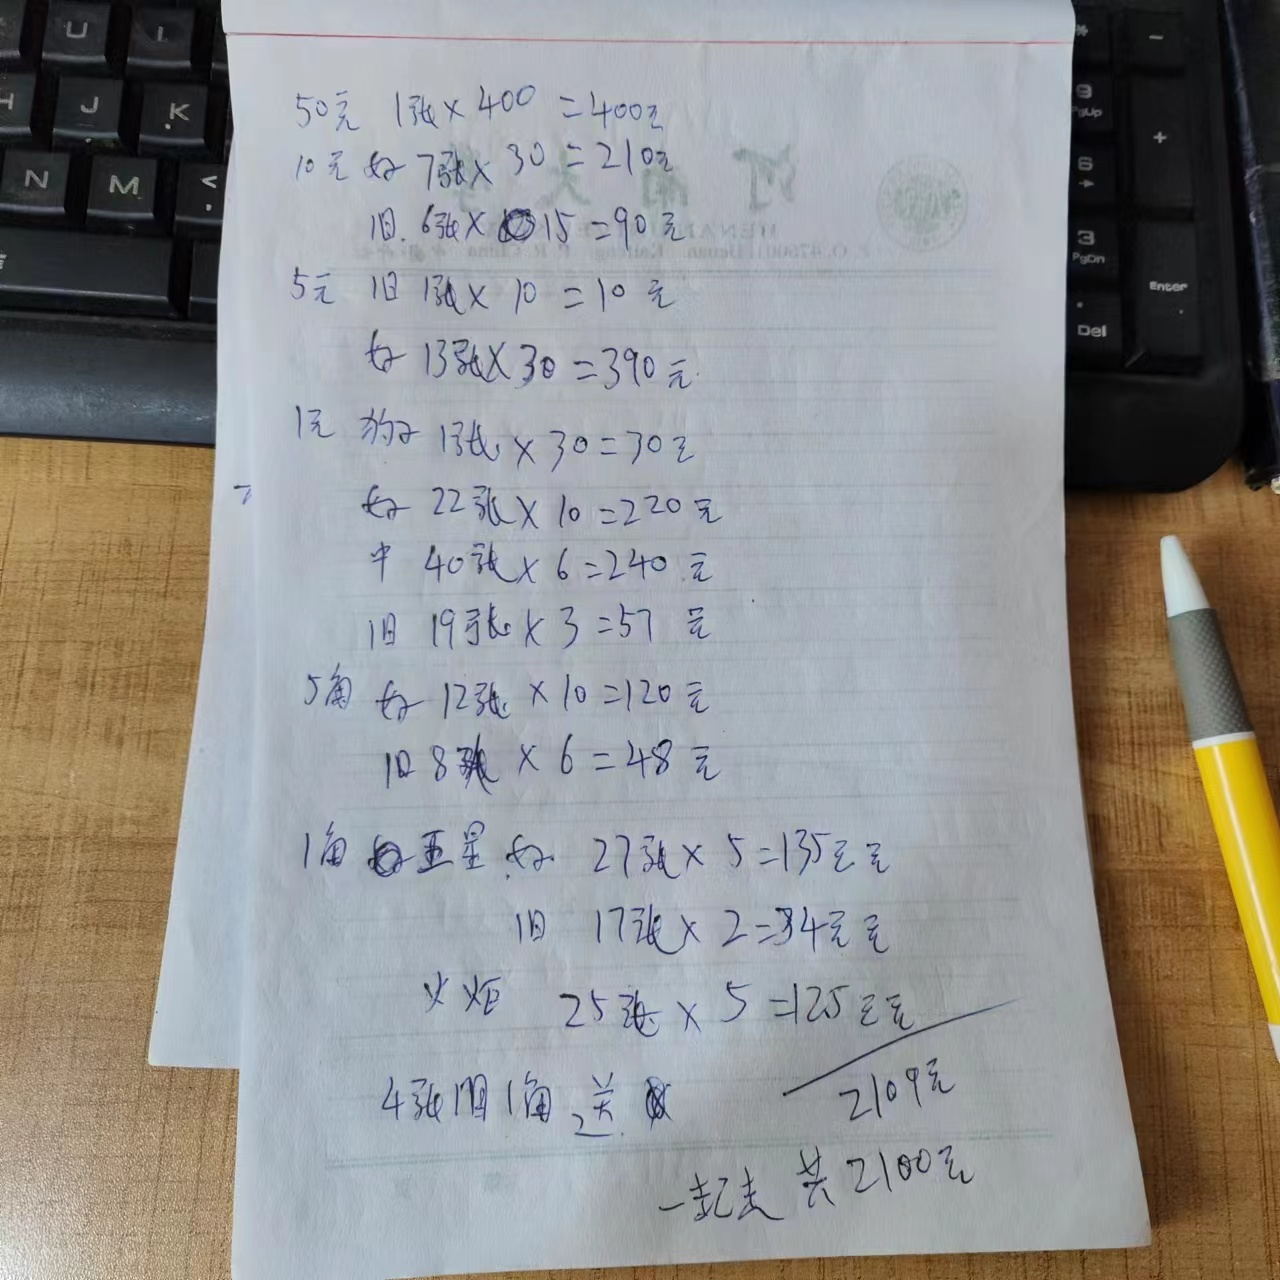 50元 1张×400=400元
10元 好 7张×30=210元
旧.6张×15=90元
5元 旧 1张×10=10元
好 13张×30=390元.
1元 豹子 1张×30=30元
好 22张×10=220元
中 40张×6=240元
旧 19张×3=57元
5角 好 12张×10=120元
旧 8张×6=48元
1角 五星.好 27张×5=135元元
旧 17张×2=34元元
火炬 25张×5=125元元
4张旧1角 送
2109元
一起走 共2100元
U I
H J K
N M <
* -
9 PgUp
+
6
3 PgDn
Enter
. Del